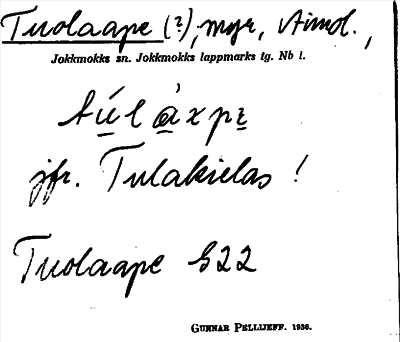 Tuolaape (?), myr, Aimol.,
Jokkmokks sn. Jokkmokks lappmarks tg. Nb l.
jfr. Tulakielas !
Tuolaape G22
GUNNAR PELLIJEFF. 1936.